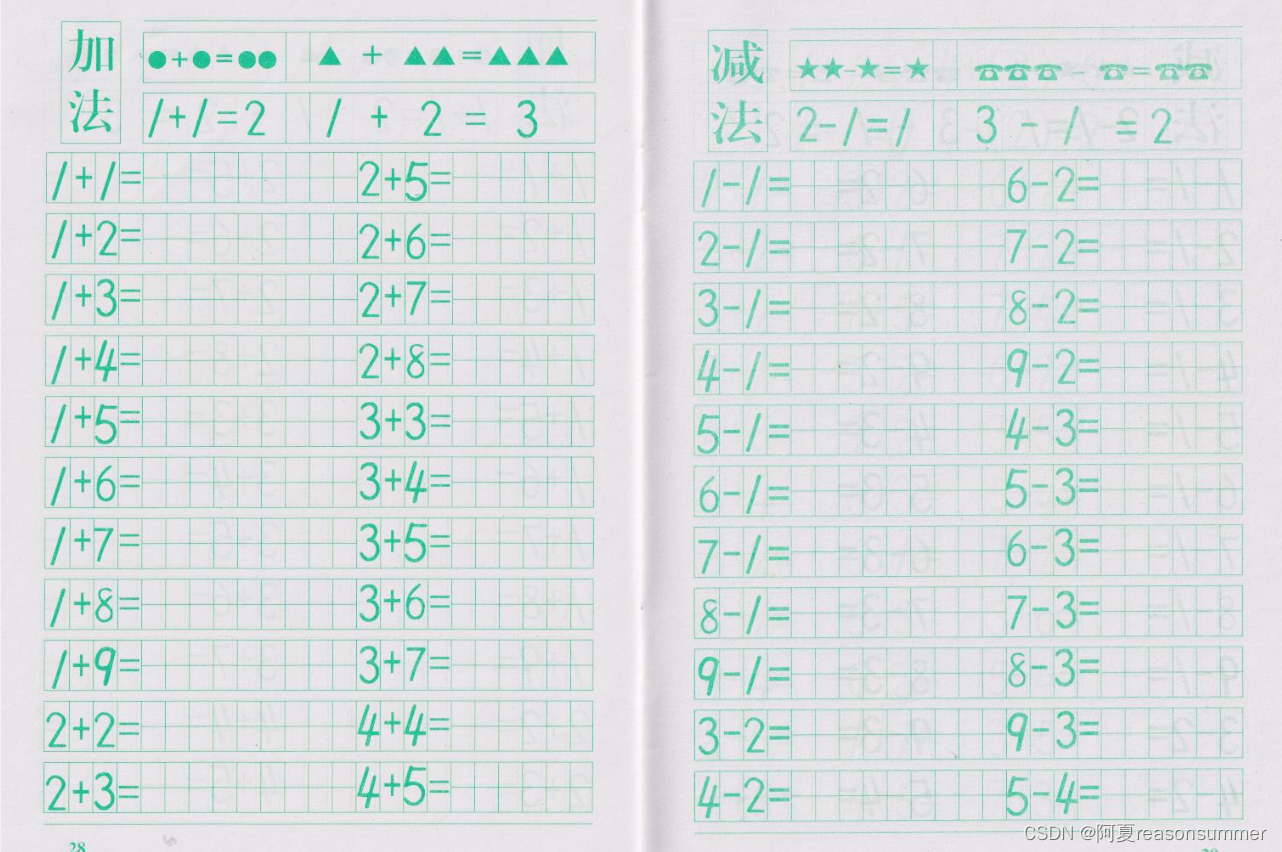 加法
●+●=●● ▲ + ▲▲=▲▲▲
1+1=2 1 + 2 = 3
1+1= 2+5=
1+2= 2+6=
1+3= 2+7=
1+4= 2+8=
1+5= 3+3=
1+6= 3+4=
1+7= 3+5=
1+8= 3+6=
1+9= 3+7=
2+2= 4+4=
2+3= 4+5=
28
减法
★★-★=★ ☎☎☎-☎=☎☎
2-1=1 3 - 1 =2
1-1= 6-2=
2-1= 7-2=
3-1= 8-2=
4-1= 9-2=
5-1= 4-3=
6-1= 5-3=
7-1= 6-3=
8-1= 7-3=
9-1= 8-3=
3-2= 9-3=
4-2= 5-4=
CSDN @阿夏reasonsummer